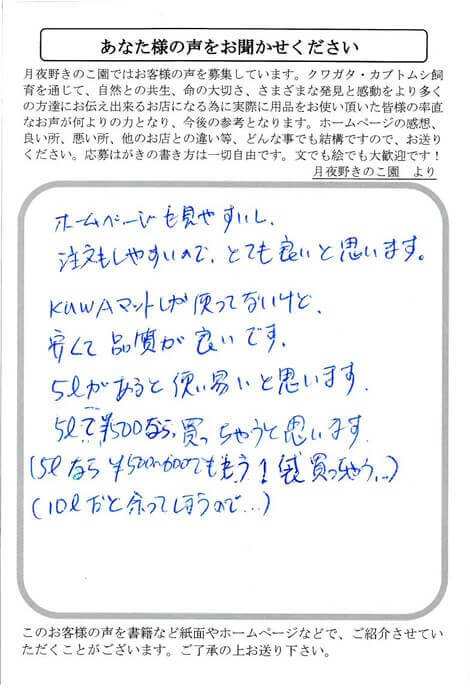 あなた様の声をお聞かせください
月夜野きのこ園ではお客様の声を募集しています。クワガタ・カブトムシ飼
育を通じて、自然との共生、命の大切さ、さまざまな発見と感動をより多く
の方達にお伝え出来るお店になる為に実際に用品をお使い頂いた皆様の率直
なお声が何よりの力となり、今後の参考となります。ホームページの感想、
良い所、悪い所、他のお店との違い等、どんな事でも結構ですので、お送り
ください。応募はがきの書き方は一切自由です。文でも絵でも大歓迎です！
月夜野きのこ園　より
ホームページも見やすいし、
注文もしやすいので、とても良いと思います。
KUWAマットしか使ってないけど、
安くて品質が良いです。
5ℓがあると使い易いと思います。
5ℓで¥500なら、買っちゃうと思います。
(5ℓなら ¥500 600でももう1袋買っちゃう…)
(10ℓだと余ってしまうので…)
このお客様の声を書籍など紙面やホームページなどで、ご紹介させてい
ただくことがございます。ご了承の上お送り下さい。